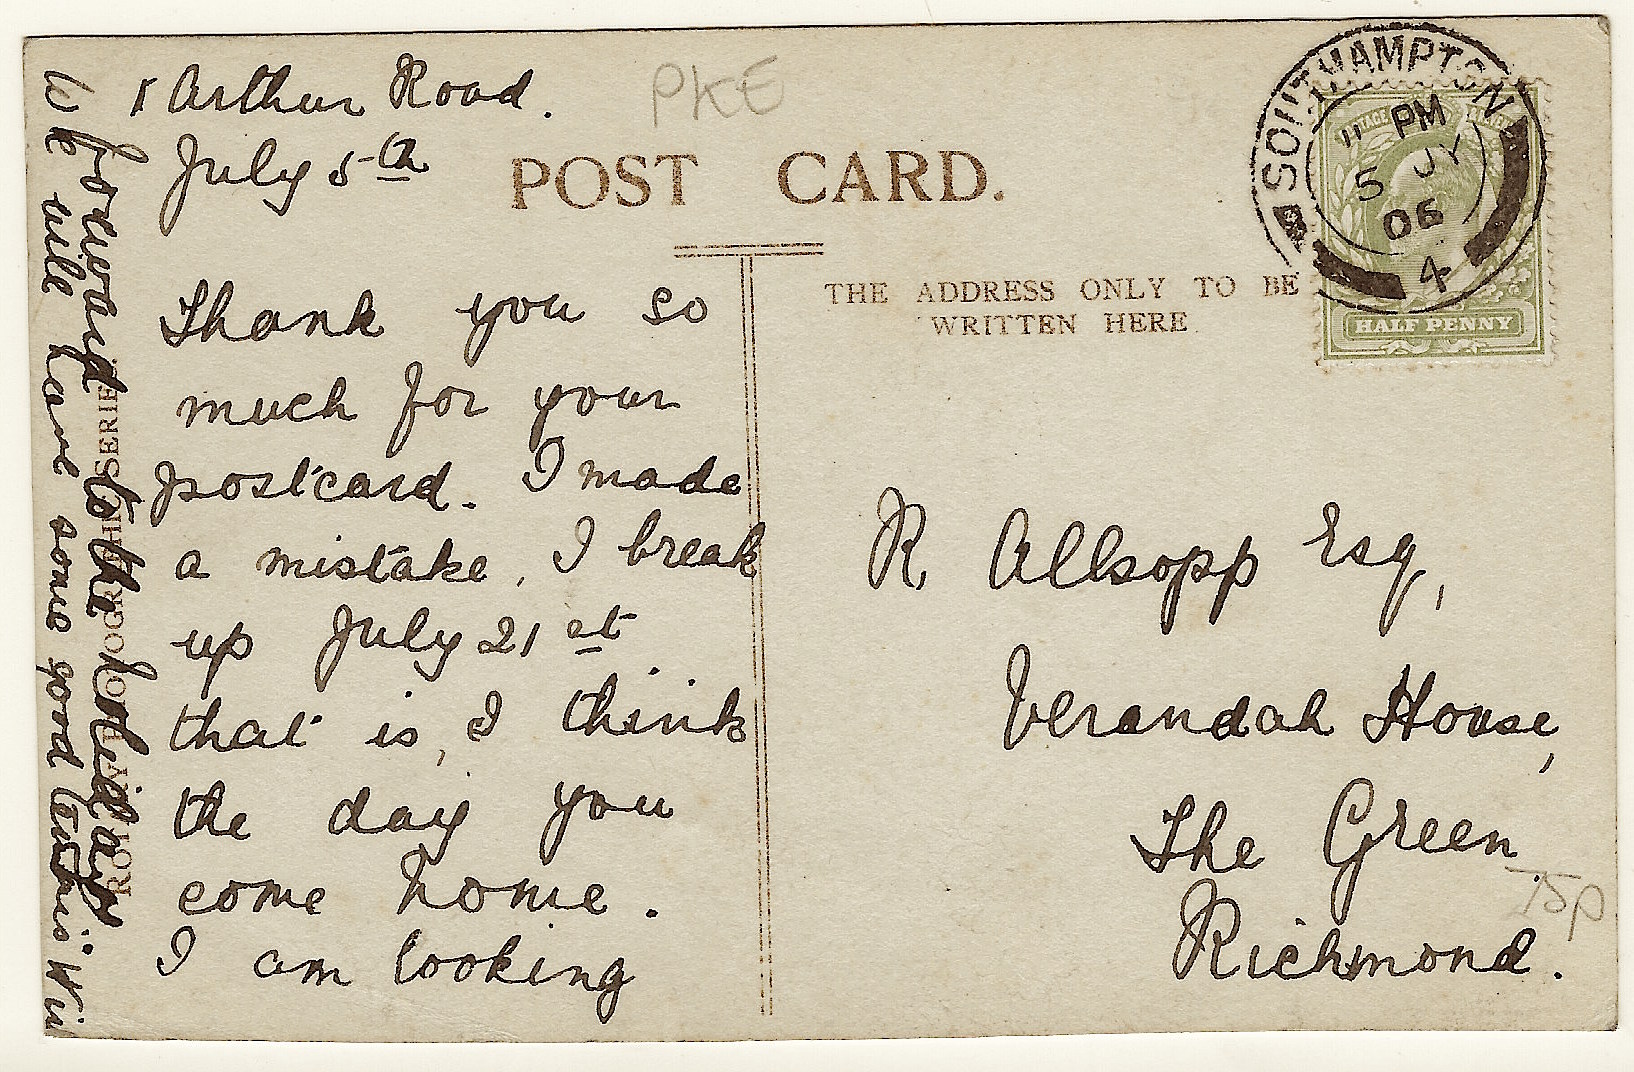 1 Arthur Road.
July 5th
Thank you so
much for your
postcard. I made
a mistake, I break
up July 21st
that is, I think
the day you
come home.
I am looking
forward to the holidays
We will have some good tennis. Wi
PKE
POST CARD.
THE ADDRESS ONLY TO BE
WRITTEN HERE
SOUTHAMPTON
11 PM
5 JY
06
4
HALF PENNY
R Allsopp Esq,
Verandah House,
The Green
Richmond.
75p
SERIES.